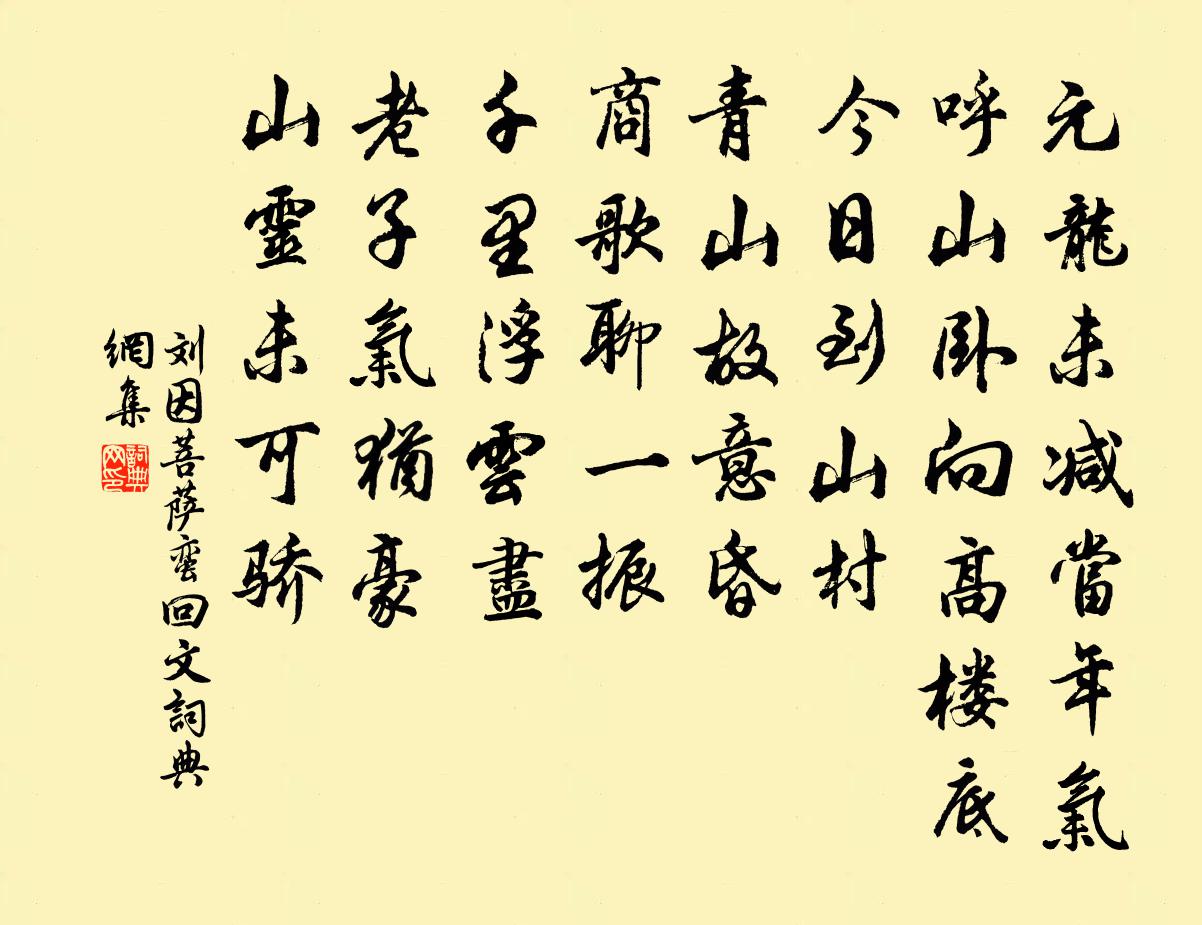 元龍未减當年氣
呼山卧向高楼底
今日到山村
青山故意昏
商歌聊一振
千里浮雲盡
老子氣猶豪
山靈未可骄
刘因菩萨蛮回文詞典
網集
詞典
网印